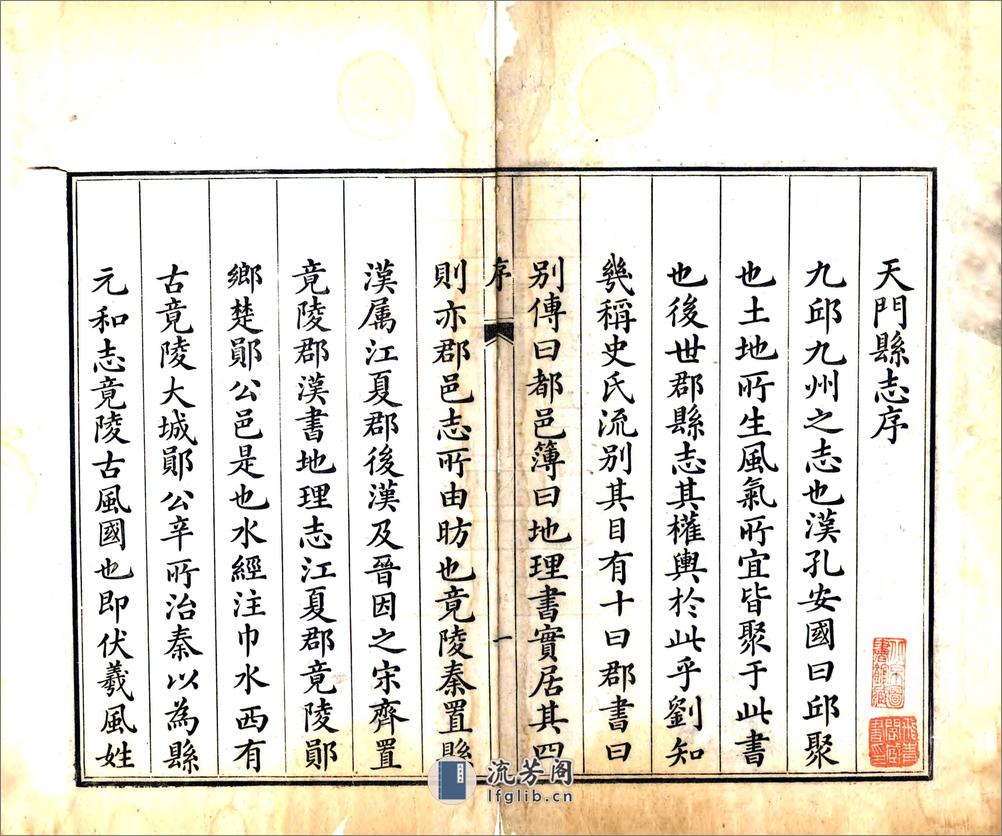 天門縣志序
九邱九州之志也漢孔安國曰邱聚
也土地所生風氣所宜皆聚于此書
也後世郡縣志其權輿於此乎劉知
幾稱史氏流別其目有十曰郡書曰
別傳曰都邑簿曰地理書實居其四
序
一
則亦郡邑志所由昉也竟陵秦置縣
漢属江夏郡後漢及晉因之宋齊置
竟陵郡漢書地理志江夏郡竟陵鄖
鄉楚鄖公邑是也水經注巾水西有
古竟陵大城鄖公辛所治秦以為縣
元和志竟陵古風國也即伏羲風姓
流芳阁
lfglib.cn